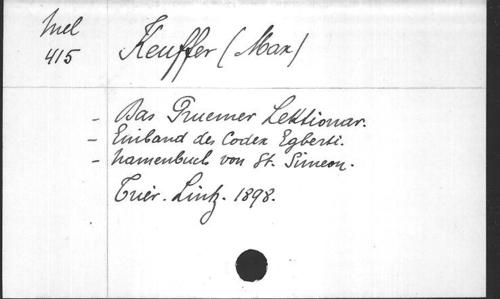 Mel
415
Keuffer (Max)
- Das Pruemer Lektionar.
- Einband des Codex Egberti.
- Namenbuch von St. Simeon.
Trier. Lintz. 1898.